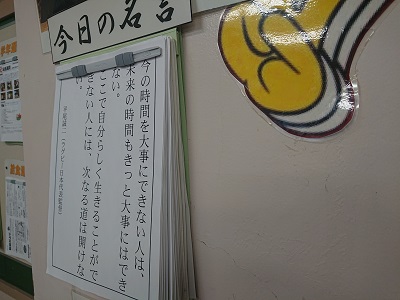 今日の名言
今の時間を大事にできない人は、
未来の時間もきっと大事にはでき
ない。
ここで自分らしく生きることがで
きない人には、次なる道は開けな
い。
平尾誠二(ラグビー日本代表監督)